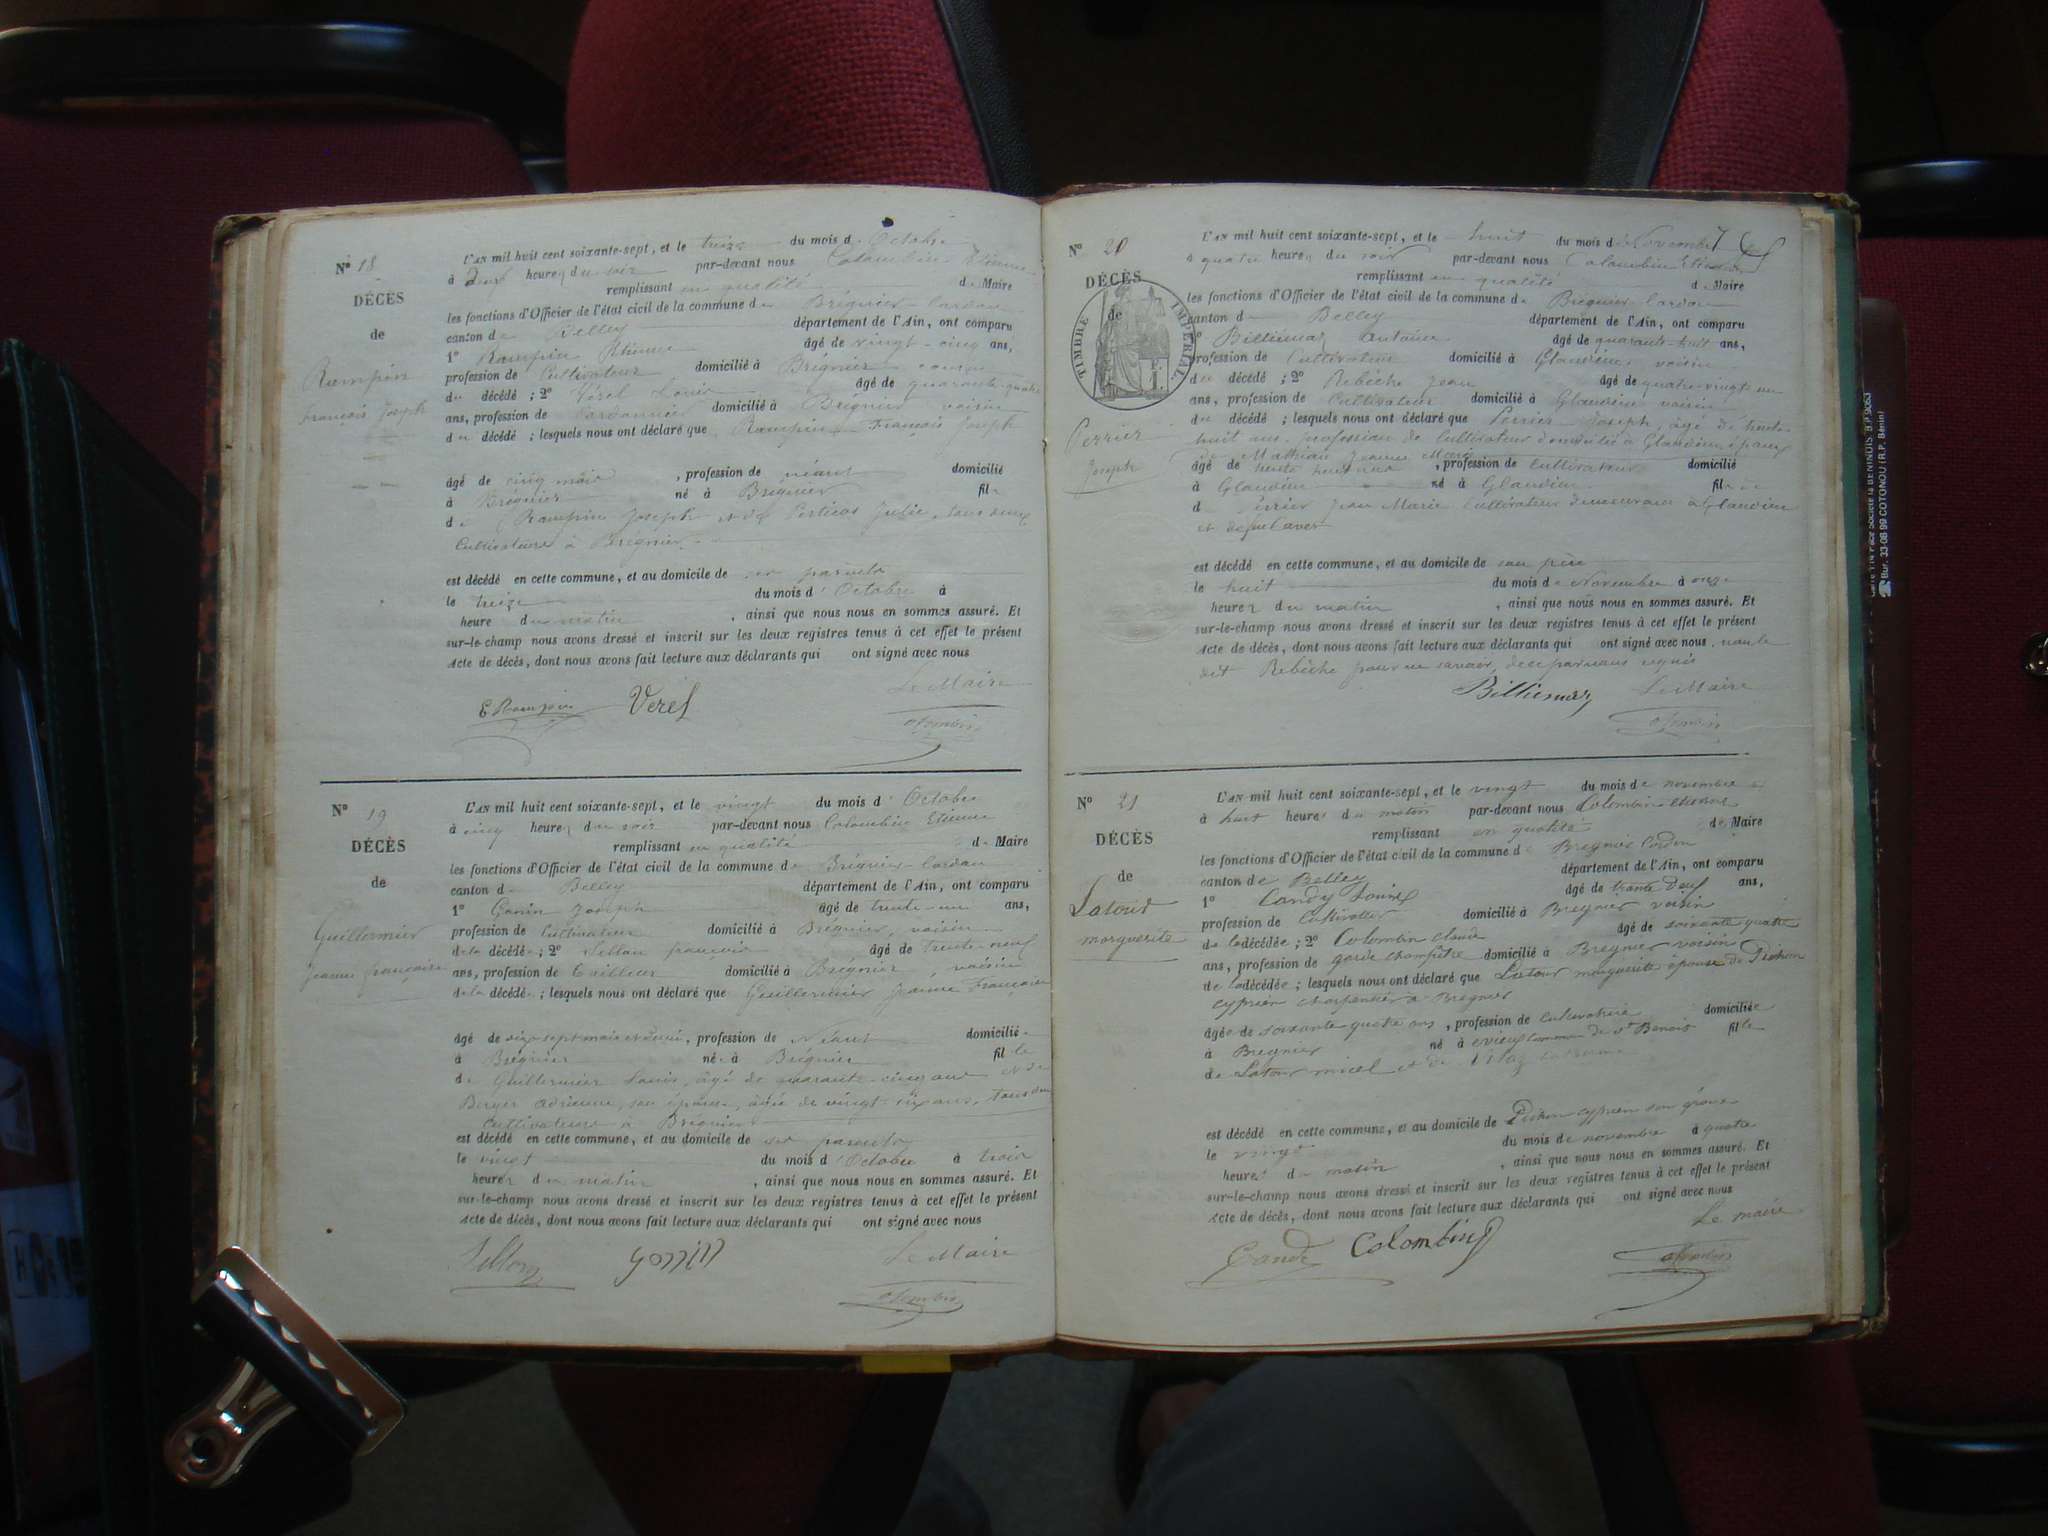 N° 18
DÉCÈS
de
Rampin
François Joseph
L'AN mil huit cent soixante-sept, et le treize du mois d'Octobre
à deux heures du soir par-devant nous Colombin Etienne
remplissant en qualité de Maire
les fonctions d'Officier de l'état civil de la commune de Brégnier-Cordon
canton de Belley département de l'Ain, ont comparu
1° Rampin Etienne âgé de vingt-cinq ans,
profession de Cultivateur domicilié à Brégnier
du décédé ; 2° Verel Louis âgé de quarante-quatre
ans, profession de Cordonnier domicilié à Brégnier voisin
du décédé ; lesquels nous ont déclaré que Rampin François Joseph
âgé de cinq mois, profession de néant domicilié
à Brégnier né à Brégnier fils
de Rampin Joseph et de Julie, tous deux
Cultivateurs à Brégnier
est décédé en cette commune, et au domicile de ses parents
le treize du mois d'Octobre à
heure du matin, ainsi que nous nous en sommes assuré. Et
sur-le-champ nous avons dressé et inscrit sur les deux registres tenus à cet effet le présent
acte de décès, dont nous avons fait lecture aux déclarants qui ont signé avec nous
E Rampin Verel Le Maire
Colombin
N° 19
DÉCÈS
de
Guillermier
Jeanne françoise
L'AN mil huit cent soixante-sept, et le vingt du mois d'Octobre
à cinq heures du soir par-devant nous Colombin Etienne
remplissant en qualité de Maire
les fonctions d'Officier de l'état civil de la commune de Brégnier-Cordon
canton de Belley département de l'Ain, ont comparu
1° Gonin Joseph âgé de trente-un ans,
profession de Cultivateur domicilié à Brégnier, voisin
de la décédée ; 2° françois âgé de trente-neuf
ans, profession de Tailleur domicilié à Brégnier, voisin
de la décédée ; lesquels nous ont déclaré que Guillermier Jeanne Françoise
âgé de dix-sept mois et demi, profession de Néant domiciliée
à Brégnier née à Brégnier fille
de Guillermier Louis, âgé de quarante-cinq ans et de
Berger Adrienne, son épouse, âgée de vingt-six ans, tous deux
Cultivateurs à Brégnier
est décédé en cette commune, et au domicile de ses parents
le vingt du mois d'Octobre à trois
heures du matin, ainsi que nous nous en sommes assuré. Et
sur-le-champ nous avons dressé et inscrit sur les deux registres tenus à cet effet le présent
acte de décès, dont nous avons fait lecture aux déclarants qui ont signé avec nous
gonin Le Maire
Colombin
N° 20
DÉCÈS
de
TIMBRE IMPÉRIAL
Perrier
Joseph
L'AN mil huit cent soixante-sept, et le huit du mois de Novembre
à quatre heures du soir par-devant nous Colombin Etienne
remplissant en qualité de Maire
les fonctions d'Officier de l'état civil de la commune de Brégnier-Cordon
canton de Belley département de l'Ain, ont comparu
1° Billiemaz Antoine âgé de quarante-huit ans,
profession de Cultivateur domicilié à Glandieu voisin
du décédé ; 2° Rebêche Jean âgé de quatre-vingt un
ans, profession de Cultivateur domicilié à Glandieu voisin
du décédé ; lesquels nous ont déclaré que Perrier Joseph, âgé de trente
huit ans, profession de Cultivateur domicilié à Glandieu, époux
de Mathian Jeanne Marie
âgé de trente huit ans, profession de Cultivateur domicilié
à Glandieu né à Glandieu fils
d Perrier Jean Marie Cultivateur demeurant à Glandieu
et
est décédé en cette commune, et au domicile de son père
le huit du mois de Novembre à onze
heures du matin, ainsi que nous nous en sommes assuré. Et
sur-le-champ nous avons dressé et inscrit sur les deux registres tenus à cet effet le présent
acte de décès, dont nous avons fait lecture aux déclarants qui ont signé avec nous, non le
dit Rebêche pour ne savoir, de ce par nous requis
Billiemaz Le Maire
Colombin
N° 21
DÉCÈS
de
Latour
marguerite
L'AN mil huit cent soixante-sept, et le vingt du mois de novembre
à huit heures du matin par-devant nous Colombin etienne
remplissant en qualité de Maire
les fonctions d'Officier de l'état civil de la commune de Bregnier Cordon
canton de Belley département de l'Ain, ont comparu
1° Candy Louis âgé de trante deux ans,
profession de Cultivateur domicilié à Bregnier voisin
de la décédée ; 2° Colombin Claude âgé de soixante quatre
ans, profession de garde champêtre domicilié à Bregnier voisin
de la décédée ; lesquels nous ont déclaré que Latour marguerite épouse de Pichon
cyprien charpentier à Bregnier
âgée de soixante quatre ans, profession de Cultivatrice domiciliée
à Bregnier né à evieu commune de St Benoit fille
de Latour micel et de
est décédé en cette commune, et au domicile de Pichon cyprien son époux
le vingt du mois de novembre à quatre
heures du matin, ainsi que nous nous en sommes assuré. Et
sur-le-champ nous avons dressé et inscrit sur les deux registres tenus à cet effet le présent
acte de décès, dont nous avons fait lecture aux déclarants qui ont signé avec nous
Le maire
Candy Colombin
Colombin
Bur. 33-08-99 COTONOU (R.P. Bénin)